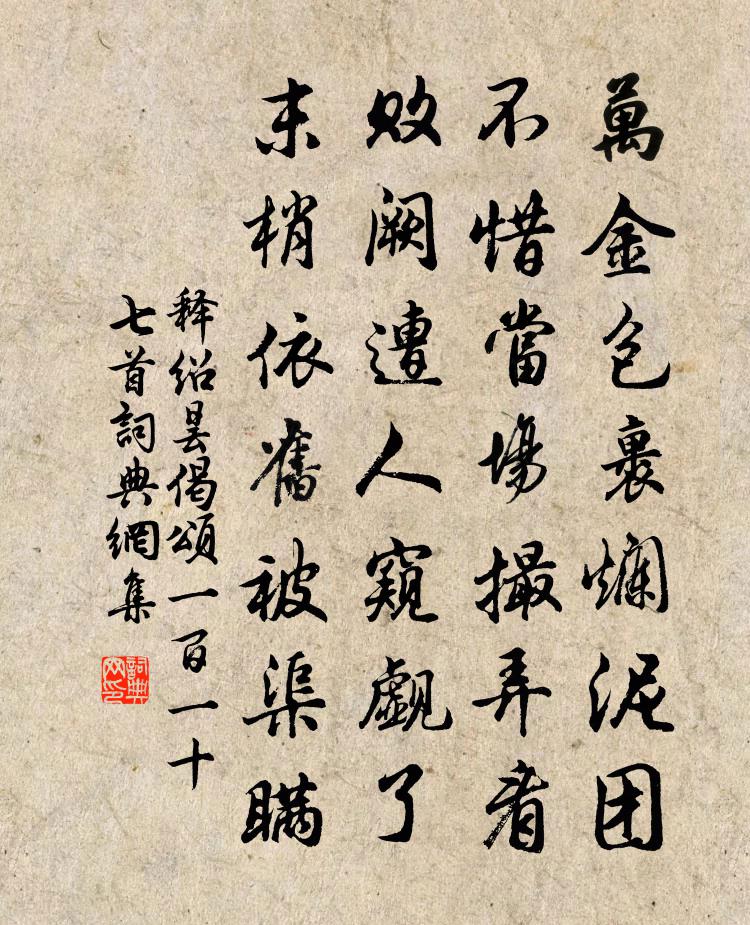 萬金包裹爛泥团
不惜當場撮弄看
败阙遭人窺覷了
末梢依舊被渠瞞
释绍昙偈頌一百一十
七首詞典網集
詞典网印